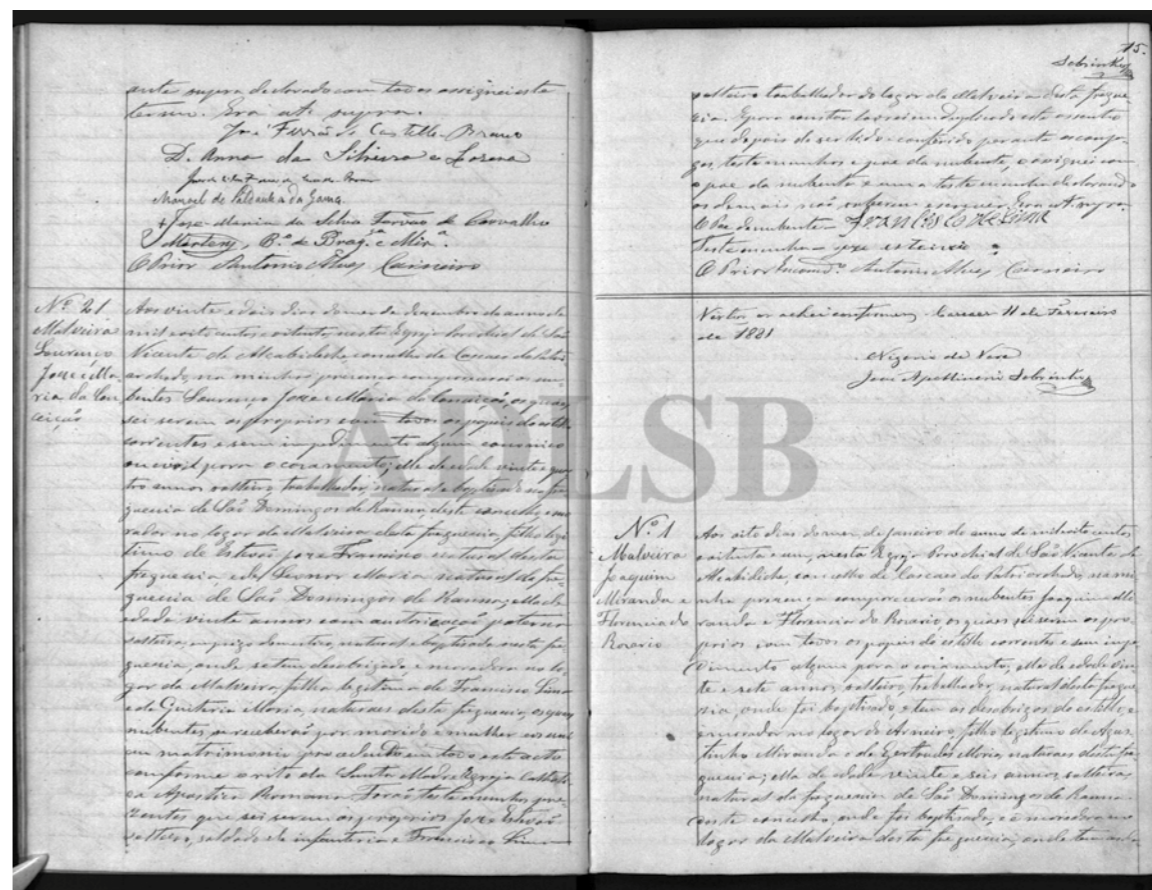 ante supra declarado com todos assignei este
termo. Era ut supra.
José Ferrão de Castello-Branco
D. Anna da Silveira e Lorena
Manuel de Saldanha da Gama
José Maria da Silva Ferrão de Carvalho
Martens, B.ª de Brag.ça e Mir.ª
O Prior Antonio Alves Carneiro
Nº 21
Malveira
Lourenço
José e Ma-
ria da Con-
ceição
Aos vinte e dois dias do mez de dezembro do anno de
mil oito centos e oitenta nesta Egreja Parochial de São
Vicente de Alcabideche concelho de Cascaes do Patri-
archado, na minha presença compareceram os nu-
bentes Lourenço José e Maria da Conceição, os quaes
sei serem os proprios com todos os papeis do estillo
correntes e sem impedimento algum canonico
ou civil para o casamento; elle de edade vinte e qua-
tro annos solteiro, trabalhador, natural e baptisado na fre-
guezia de São Domingos de Ranna, deste concelho, e mo-
rador no logar da Malveira desta freguezia, filho legi-
timo de Estevão José Francisco natural desta
freguezia, e de Leonor Maria natural da fre-
guezia de São Domingos de Ranna; ella de
edade vinte annos com autorisação paterna
solteira, natural e baptisada nesta fre-
guezia, onde se tem desobrigado e moradora no lo-
gar da Malveira, filha legitima de Francisco Lima
e de Quiteria Maria, naturaes desta freguezia, os quaes
nubentes se receberão por marido e mulher e os uni
em matrimonio procedendo em todo este acto
conforme o rito da Santa Madre Egreja Catholi-
ca Apostolica Romana. Forão testemunhas pre-
zentes que sei serem os proprios José Estevão
solteiro, soldado de infanteria e Francisco Lima
15.
Sobrinho
solteiro trabalhador do logar da Malveira desta fregue-
zia. E para constar lavrei em duplicado este assento
que depois de ser lido e conferido perante os conju-
ges, testemunhas e pae da nubente, o assignei com
o pae da nubente e uma testemunha declarando
os demais não saberem escrever. Era ut supra.
O Pae da nubente Francisco de Lima
Testemunha José estevão
O Prior Encomd.º Antonio Alves Carneiro
Vistos os achei conformes. Cascaes 11 de Fevereiro
de 1881
O Vigario da Vara
João Apollinario Sobrinho
Nº 1
Malveira
Joaquim
Miranda e
Florencia do
Rosario
Aos oito dias do mez de janeiro do anno de mil oito centos
e oitenta e um, nesta Egreja Parochial de São Vicente de
Alcabideche, concelho de Cascaes do Patriarchado, na mi-
nha presença comparecerão os nubentes Joaquim Mi-
randa e Florencia do Rosario os quaes sei serem os pro-
prios com todos os papeis do estillo corrente e sem impe-
dimento algum para o casamento; elle de edade vin-
te e sete annos, solteiro, trabalhador, natural desta fregue-
zia, onde foi baptisado, e tem as desobrigas do estillo, e
é morador no logar do Arneiro, filho legitimo de Agos-
tinho Miranda e de Gertrudes Maria, naturaes desta fre-
guezia; ella de edade vinte e seis annos, solteira,
natural da freguezia de São Domingos de Ranna
deste concelho, onde foi baptisada, e é moradora no
logar da Malveira desta freguezia, onde tem
ADLSB